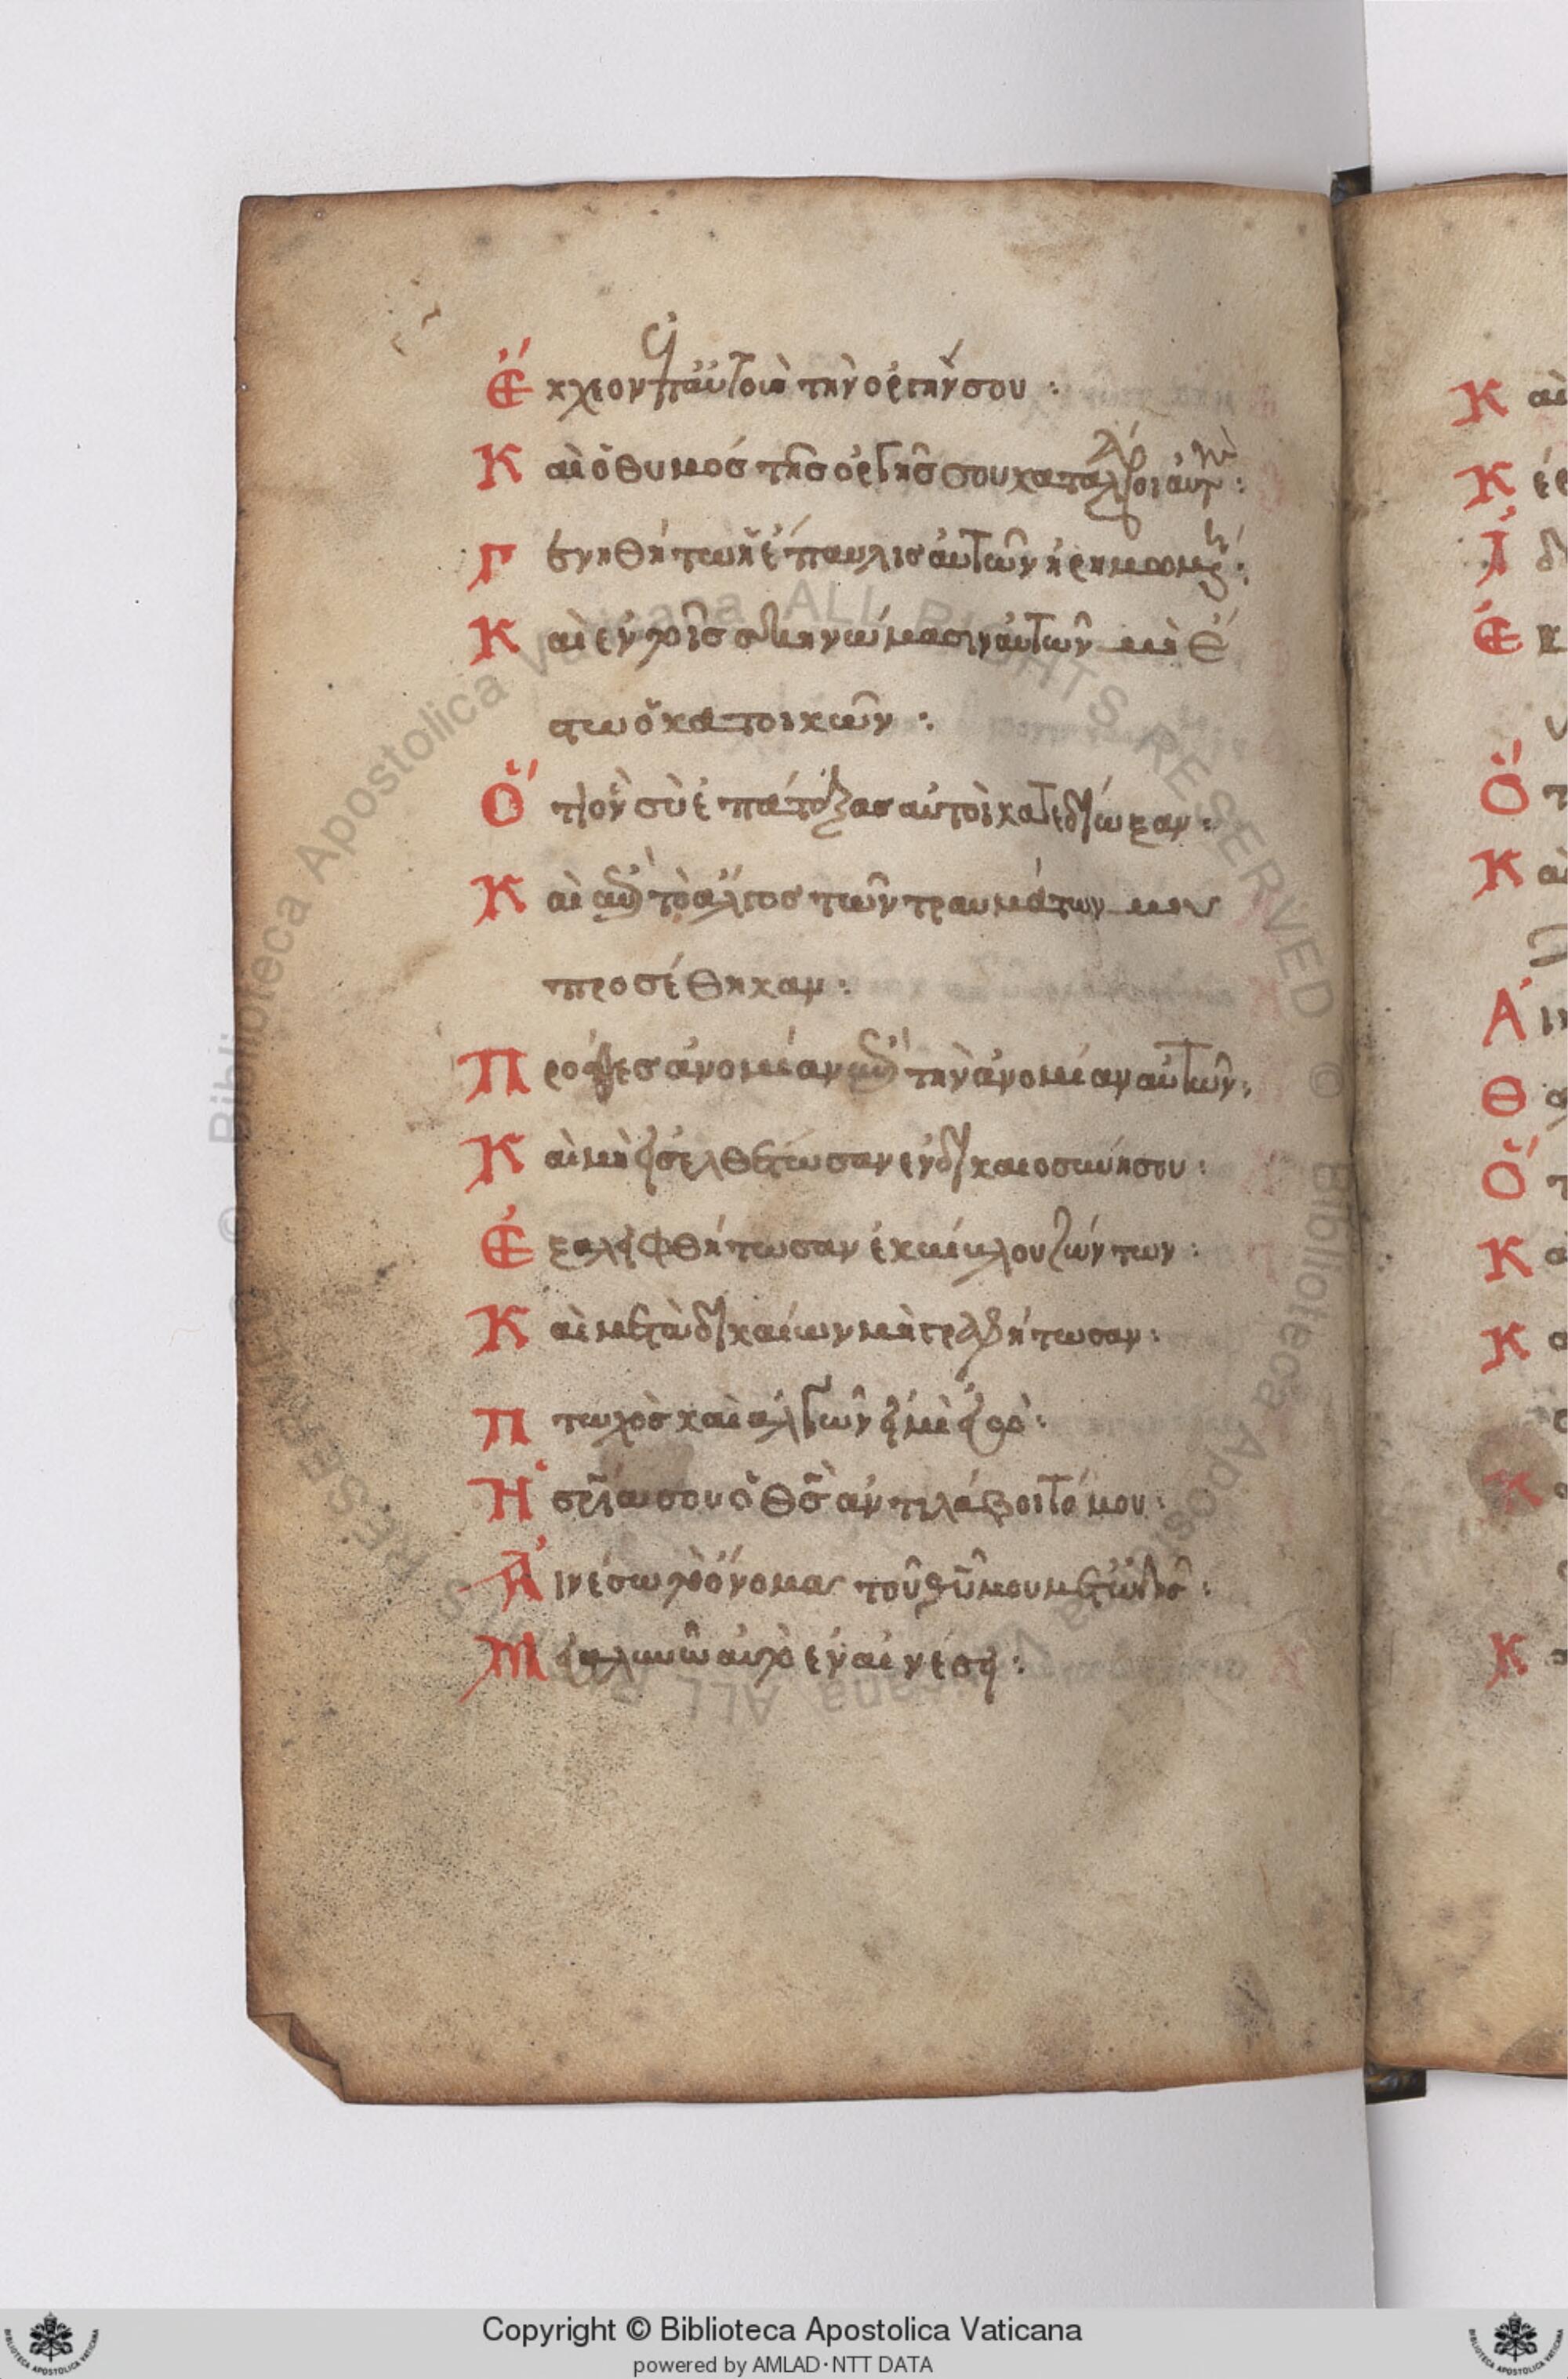 Ἔκχεον ἐπ αὐτοὺς τὴν ὀργήν σου :
Καὶ ὁ θυμὸς τῆς ὀργῆς σου καταλάβοι αὐτούς :
Γενηθήτω ἡ ἔπαυλις αὐτῶν ἠρημωμένη :
Καὶ ἐν τοῖς σκηνώμασιν αὐτῶν μὴ ἔ
στω ὁ κατοικῶν :
Ὅτι ὃν σὺ ἐπάταξας αὐτοὶ κατεδίωξαν :
Καὶ ἐπὶ τὸ ἄλγος τῶν τραυμάτων μου
προσέθηκαν :
Πρόσθες ἀνομίαν ἐπὶ τὴν ἀνομίαν αὐτῶν :
Καὶ μὴ εἰσελθέτωσαν ἐν δικαιοσύνη σου :
Ἐξαλειφθήτωσαν ἐκ βίβλου ζώντων :
Καὶ μετὰ δικαίων μὴ γραφήτωσαν :
Πτωχὸς καὶ ἀλγῶν εἰμὶ ἐγὼ :
Ἡ σρία σου ὁ θς ἀντιλάβοιτό μου :
Αἰνέσω τὸ ὄνομα τοῦ θυ μου μετ ὠδῆς :
Μεγαλυνῶ αὐτὸ ἐν αἰνέσει :
Copyright © Biblioteca Apostolica Vaticana
powered by AMLAD·NTT DATA